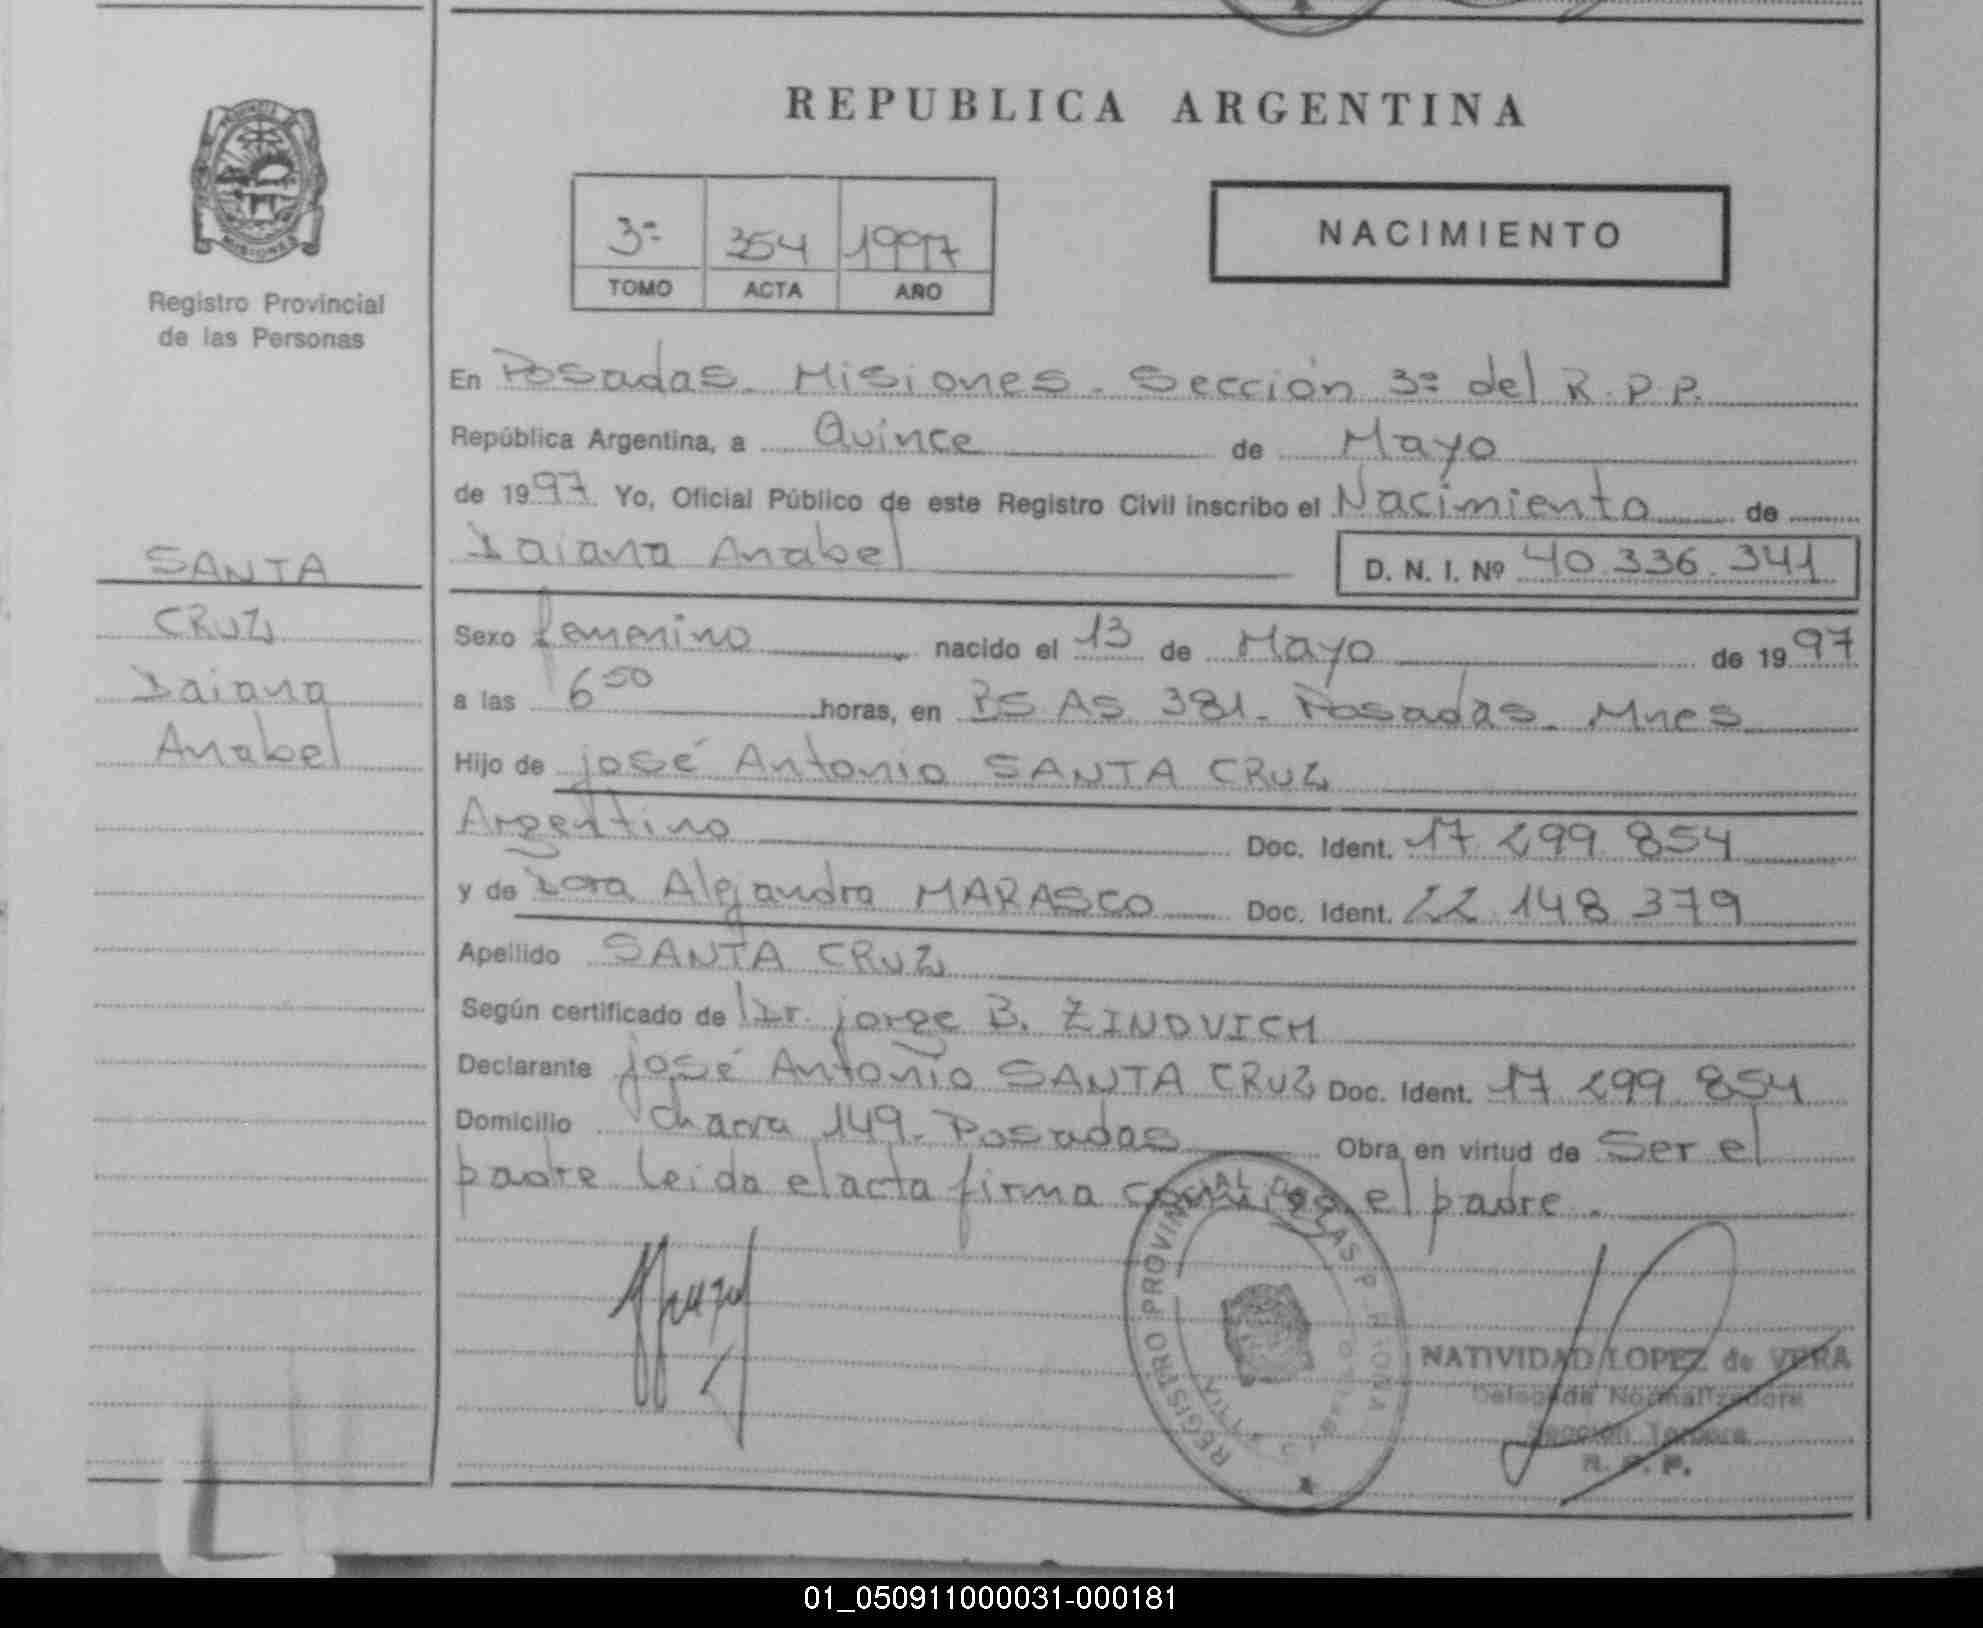 REPUBLICA ARGENTINA
3ª 354 1997
TOMO ACTA AÑO
NACIMIENTO
Registro Provincial
de las Personas
MISIONES
SANTA
CRUZ
Daiana
Anabel
En Posadas. Misiones. Sección 3ª del R.P.P.
República Argentina, a Quince de Mayo
de 1997 Yo, Oficial Público de este Registro Civil inscribo el Nacimiento de
Daiana Anabel D. N. I. Nº 40.336.341
Sexo femenino nacido el 13 de Mayo de 1997
a las 6 50 horas, en BS AS 381. Posadas. Mnes
Hijo de josé Antonio SANTA CRUZ
Argentino Doc. Ident. 17.299.854
y de Dora Alejandra MARASCO Doc. Ident. 22.148.379
Apellido SANTA CRUZ
Según certificado de Dr. jorge B. ZINOVICH
Declarante josé Antonio SANTA CRUZ Doc. Ident. 17.299.854
Domicilio chacra 149. Posadas Obra en virtud de Ser el
padre leida el acta firma conmigo el padre.
REGISTRO PROVINCIAL DE LAS PERSONAS
NATIVIDAD LOPEZ de VERA
Delegada Normalizadora
Sección Tercera
R. P. P.
01_050911000031-000181